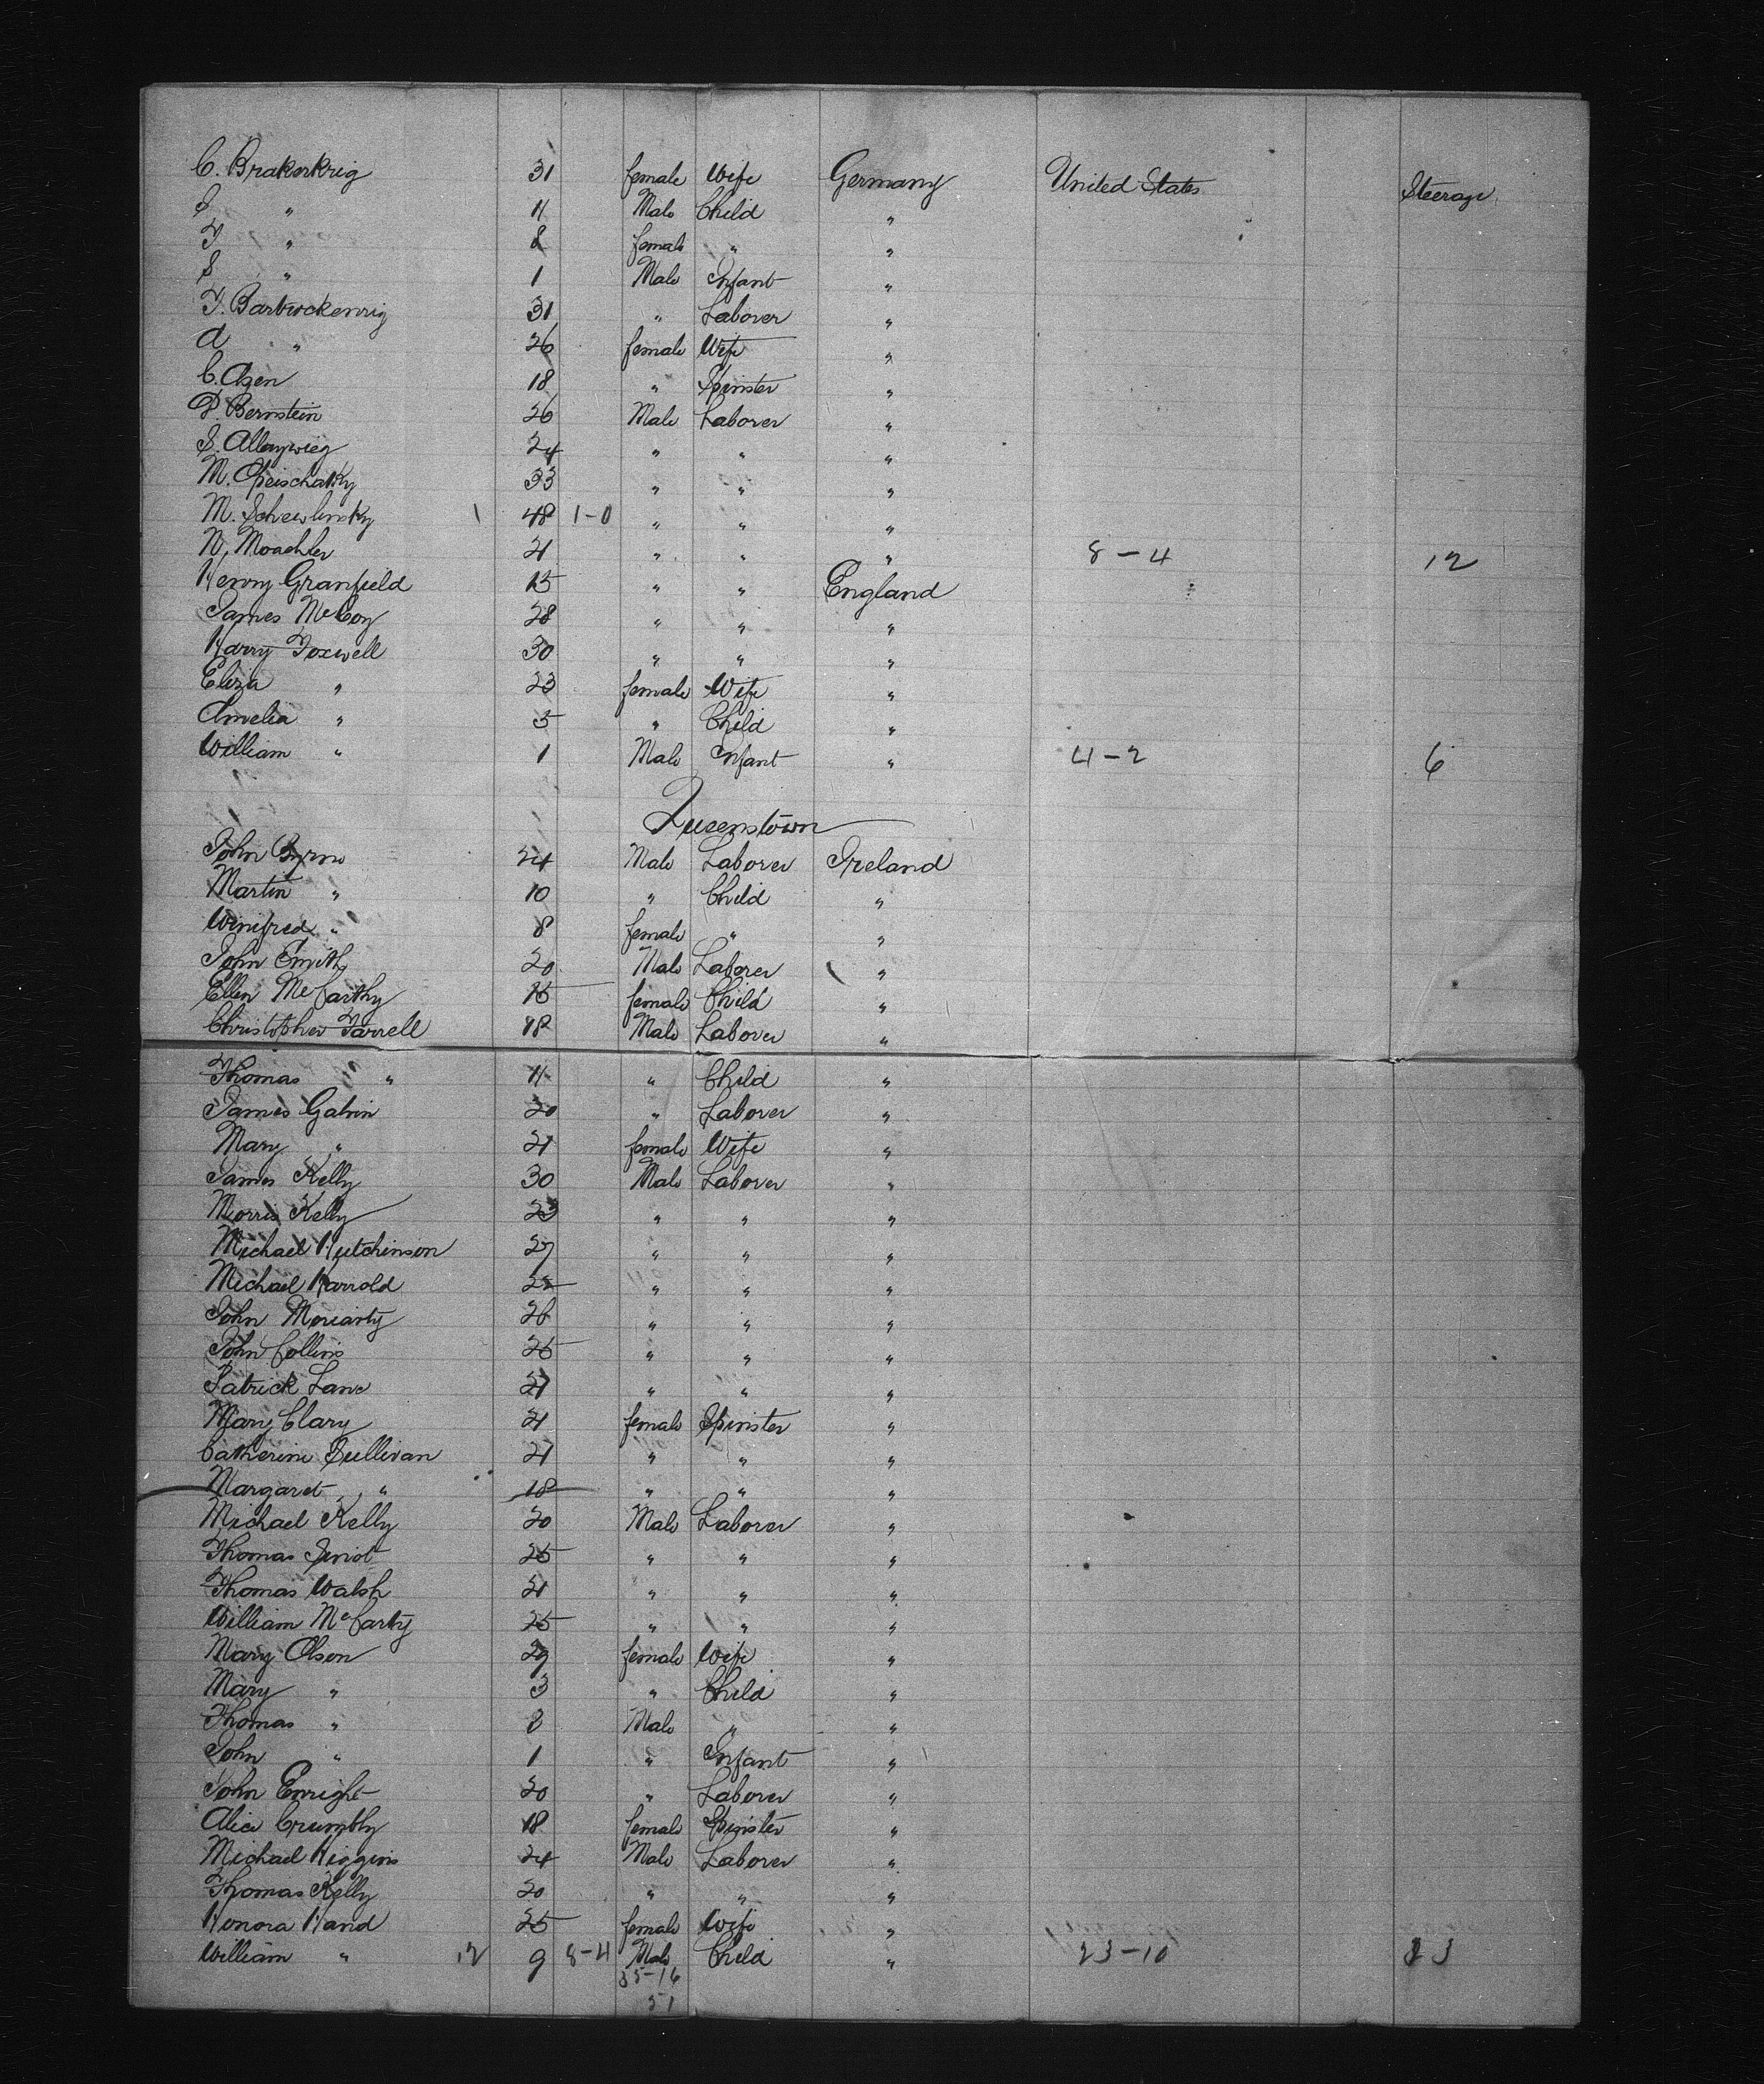 C. Brakerkrig 31 female Wife Germany United States Steerage
S " 11 Male Child "
T " 8 female " "
S " 1 Male Infant "
T. Bartwockenrig 31 " Laborer "
A " 26 female Wife "
C. Agen 18 " Spinster "
P. Bernstein 26 Male Laborer "
S. Allaywieg 24 " " "
M. 33 " " "
M. Schewlinsky 1 48 1-0 " " "
N. Moachler 21 " " " 8-4 12
Henry Granfield 15 " " England
James McCoy 28 " " "
Harry Foxwell 30 " " "
Eliza " 23 female Wife "
Amelia " 5 " Child "
William " 1 Male Infant " 4-2 6
Queenstown
John Byrne 24 Male Laborer Ireland
Martin " 10 " Child "
Winifred " 8 female " "
John Smith 20 Male Laborer "
Ellen McCarthy 15 female Child "
Christopher Farrell 18 Male Laborer "
Thomas " 11 " Child "
James Galvin 20 " Laborer "
Mary " 21 female Wife "
James Kelly 30 Male Laborer "
Morris Kelly 23 " " "
Michael Hutchinson 27 " " "
Michael Harrold 22 " " "
John Moriarty 26 " " "
John Collins 25 " " "
Patrick Lane 21 " " "
Mary Clary 21 female Spinster "
Catherine Sullivan 21 " " "
Margaret " 18 " " "
Michael Kelly 20 Male Laborer "
Thomas 25 " " "
Thomas Walsh 21 " " "
William McCarty 25 " " "
Mary Olson 29 female Wife "
Mary " 3 " Child "
Thomas " 8 Male " "
John " 1 " Infant "
John Enright 20 " Laborer "
Alice Crumbly 18 female Spinster "
Michael Higgins 24 Male Laborer "
Thomas Kelly 20 " " "
Honora Hand 25 female Wife "
William " 12 9 8-4 Male Child " 23-10 33
35-16
51